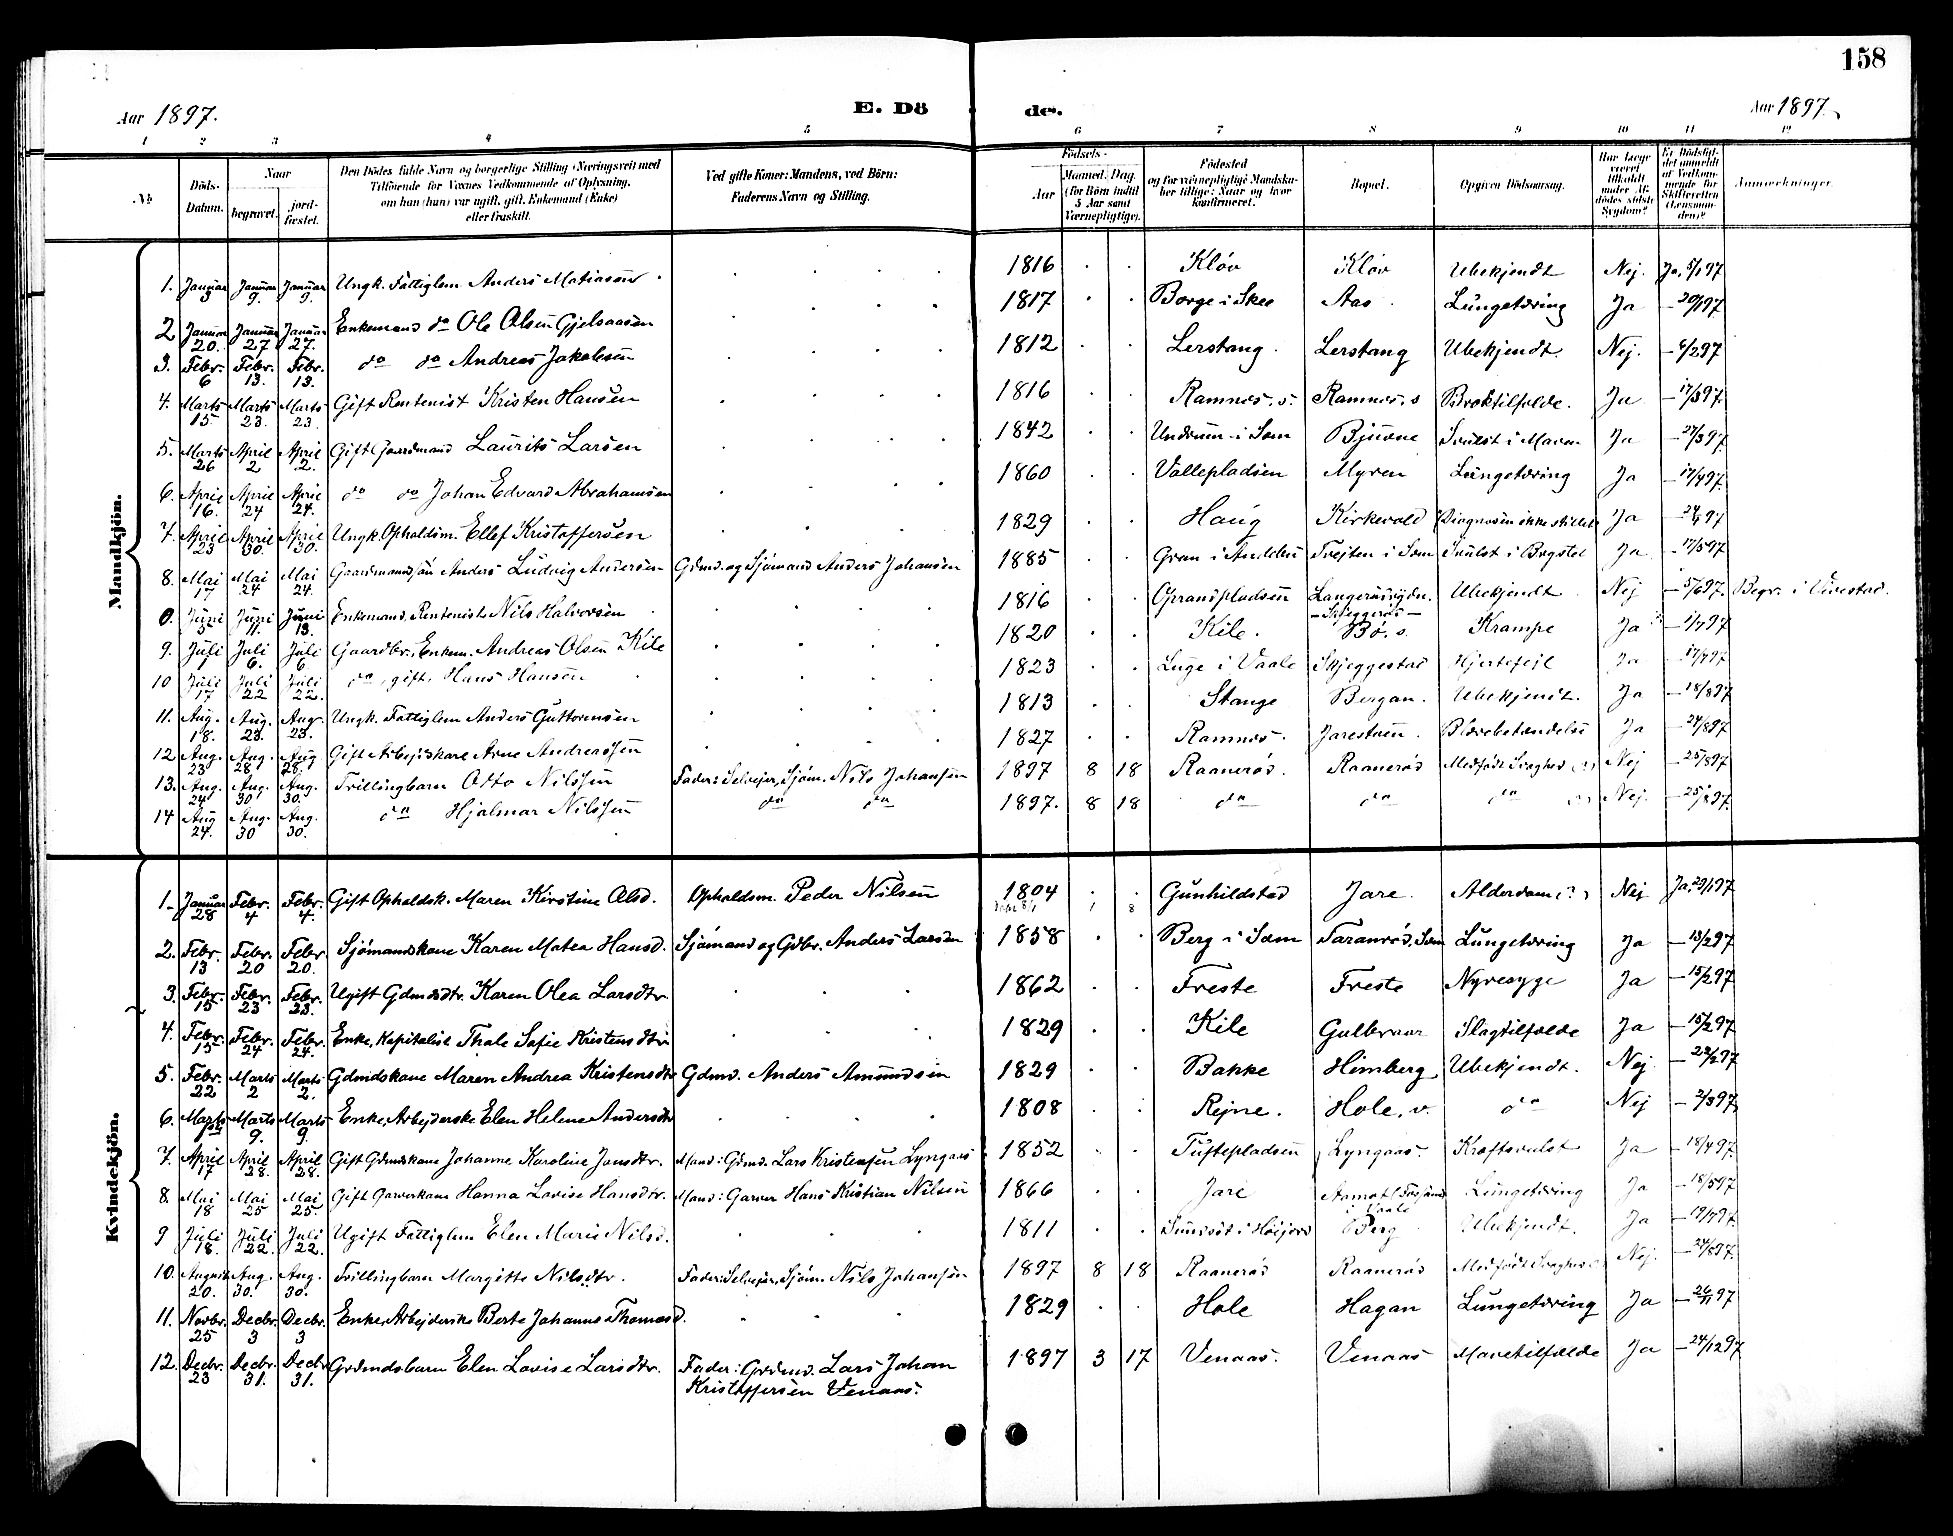 158
Aar 1897. E. Dö de. Aar 1897.
1 2 3 4 5 6 7 8 9 10 11 12
No Döds-Datum. Naar begravet. jordfæstet. Den Dödes fulde Navn og borgerlige Stilling (Næringsvei) med Tilföiende for Voxnes Vedkommende af Oplysning, om han (hun) var ugift, gift, Enkemand (Enke) eller fraskilt. Ved gifte Koner: Mandens, ved Börn: Faderens Navn og Stilling. Födsels- Aar Maaned. Dag. (for Börn indtil 5 Aar samt Værnepligtige). Födested og for værnepligtige Mandskaber tillige: Naar og hvor konfirmeret. Bopæl. Opgiven Dödsaarsag. Har Læge været tilkaldt under Afdödes sidste Sygdom? Er Dödsfaldet anmeldt af Vedkommende for Skifteretten (Lensmanden)? Anmærkninger.
Mandkjön.
1. Januar 3 Januar 9. Januar 9. Ungk. Fattiglem Anders Matiasen 1816 Kløv Kløv Ubekjendt Nej. Ja, 5/1 97
2 Januar 20. Januar 27 Januar 27. Enkemand do Ole Olsen Gjelsaasen 1817 Borge i Skee Aas Lungetæring Ja - 20/1 97
3. Febr. 6 Febr. 13. Febr. 13. do do Andreas Jakobsen 1812 Lerstang. Lerstang Ubekjendt. Nej. - 6/2 97
4. Marts 15 Marts 23. Marts 23. Gift Rentenist Kristen Hansen 1816 Ramnes, s. Ramnes, s Broktilfælde. Ja - 17/3 97
5. Marts 26 April 2 April 2. Gift Gaardmand Laurits Larsen 1842 Undrum i Sem Bjuene Svulst i Maven Ja - 27/3 97
6. April 16. April 24 April 24. do do Johan Edvard Abrahamsen 1860 Vallepladsen Myren Lungetæring Ja - 17/4 97
7. April 23 April 30. April 30. Ungk. Opholdsm. Ellef Kristoffersen 1829 Haug Kirkevold Diagnosen ikke stillet Ja
8. Mai 17 Mai 24 Mai 24. Gaardmandssøn Anders Ludvig Andersen Gdmd. og Sjömand Anders Johansen 1885 Gran i Andebu Tvejten i Sem Svulst i Brystet Ja - 17/5 97
0. Juni 5 Juni 11. Juni 13. Enkemand. Rentenist Nils Halvorsen 1816 Ubekjendt Nej - 5/6 97. Begr. i Vivestad.
9. Juli 1 Juli 6. Juli 6 Gaardbr. Enkem. Andreas Olsen Kile 1820 Kile. Bø, s. Krampe Ja - 1/7 97
10 Juli 17 Juli 22 Juli 22. do, gift, Hans Hansen 1823 Luge i Vaale Skjeggestad Hjertefejl Ja - 17/7 97
11. Aug. 18. Aug. 23. Aug. 23. Ungk. Fattiglem Anders Guttormsen 1813 Stange Bergan. Ubekjendt. Ja - 18/8 97
12 Aug. 23 Aug. 28 Aug 28. Gift Arbejdskare Arne Andreassen 1827 Ramnes. Jarestuen. Blærebetændelse Ja - 24/8 97
13. Aug. 24 Aug. 30 Aug. 30. Trillingbarn Otto Nilssen Fader: Selvejer, Sjöm. Nils Johansen 1897 8 18 Raanerös. Raanerös Medfødt Svaghed Nej - 25/8 97
14 Aug 24. Aug. 30 Aug. 30. do Hjalmar Nilssen do do 1897. 8 18 do do do Nej. - 25/8 97
Kvindekjön.
1. Januar 28 Febr. 4 Febr. 4. Gift Opholdsk. Maren Kirstine Olsd. Opholdsm. Peder Nilsen 1804 Gunhildstad Jare. Alderdom (?) Nej Ja, 29/1 97
2. Febr. 13 Febr. 20 Febr. 20. Sjömandskone Karen Matea Hansd. Sjömand og Gdbr. Anders Larsen 1858 Berg i Sem Taranrød, Sem Lungetæring Ja - 13/2 97
3. Febr. 15 Febr. 23 Febr. 23. Ugift Gdmdsdtr. Karen Olea Larsdtr. 1862 Freste Freste Nyresyge Ja - 15/2 97
4. Febr. 15 Febr. 24 Febr. 24. Enke, Kapitalist Thale Sofie Kristensdtr 1829 Kile Gulbraar Slagtilfælde Ja - 15/2 97
5. Febr. 22 Marts 2 Marts 2. Gdmdskone Maren Andrea Kristensdtr Gdmd. Anders Amundsen 1829 Bakke Himberg Ubekjendt. Nej - 22/2 97
6. Marts Marts 9. Marts 9. Enke, Arbejderske Elen Helene Andersdtr 1808 Rejne. Hole, v. do Nej - 2/3 97
7. April 17 April 28. April 28. Gift Gdmdskone Johanne Karoline Jonsdtr. Mand: Gdmd. Lars Kristensen Lyngaas 1852 Tuftepladsen Lyngaas. Kræftsvulst Ja - 18/4 97
8. Mai 18 Mai 25 Mai 25 Gift Garverkone Hanna Lovise Hansdtr. Mand: Garver Hans Kristian Nilsen 1866 Jare i Vaale Lungetæring Ja - 18/5 97
9 Juli 18. Juli 22. Juli 22. Ugift Fattiglem Elen Marie Nilsd. 1811 Berg Ubekjendt. Ja - 19/7 97
10. August 20. Aug. 30. Aug. 30. Trillingbarn Margitte Nilsdtr. Fader: Selvejer, Sjöm. Nils Johansen 1897 8 18 Raanerös Raanerös Medfødt Svaghed Nej. - 24/8 97
11. Novbr. 25 Decbr. 3 Decbr. 3 Enke, Arbejderske Berte Johanne Thomasd. 1829 Hole Hagan Lungetæring Ja - 26/11 97
12. Decbr. 23 Decbr. 31. Decbr 31. Grdmdsbarn Elen Lovise Larsdtr. Fader: Grdmd. Lars Johan Kristoffersen Venaas. 1897 3 17 Venaas. Venaas Mavetilfælde Ja - 24/12 97